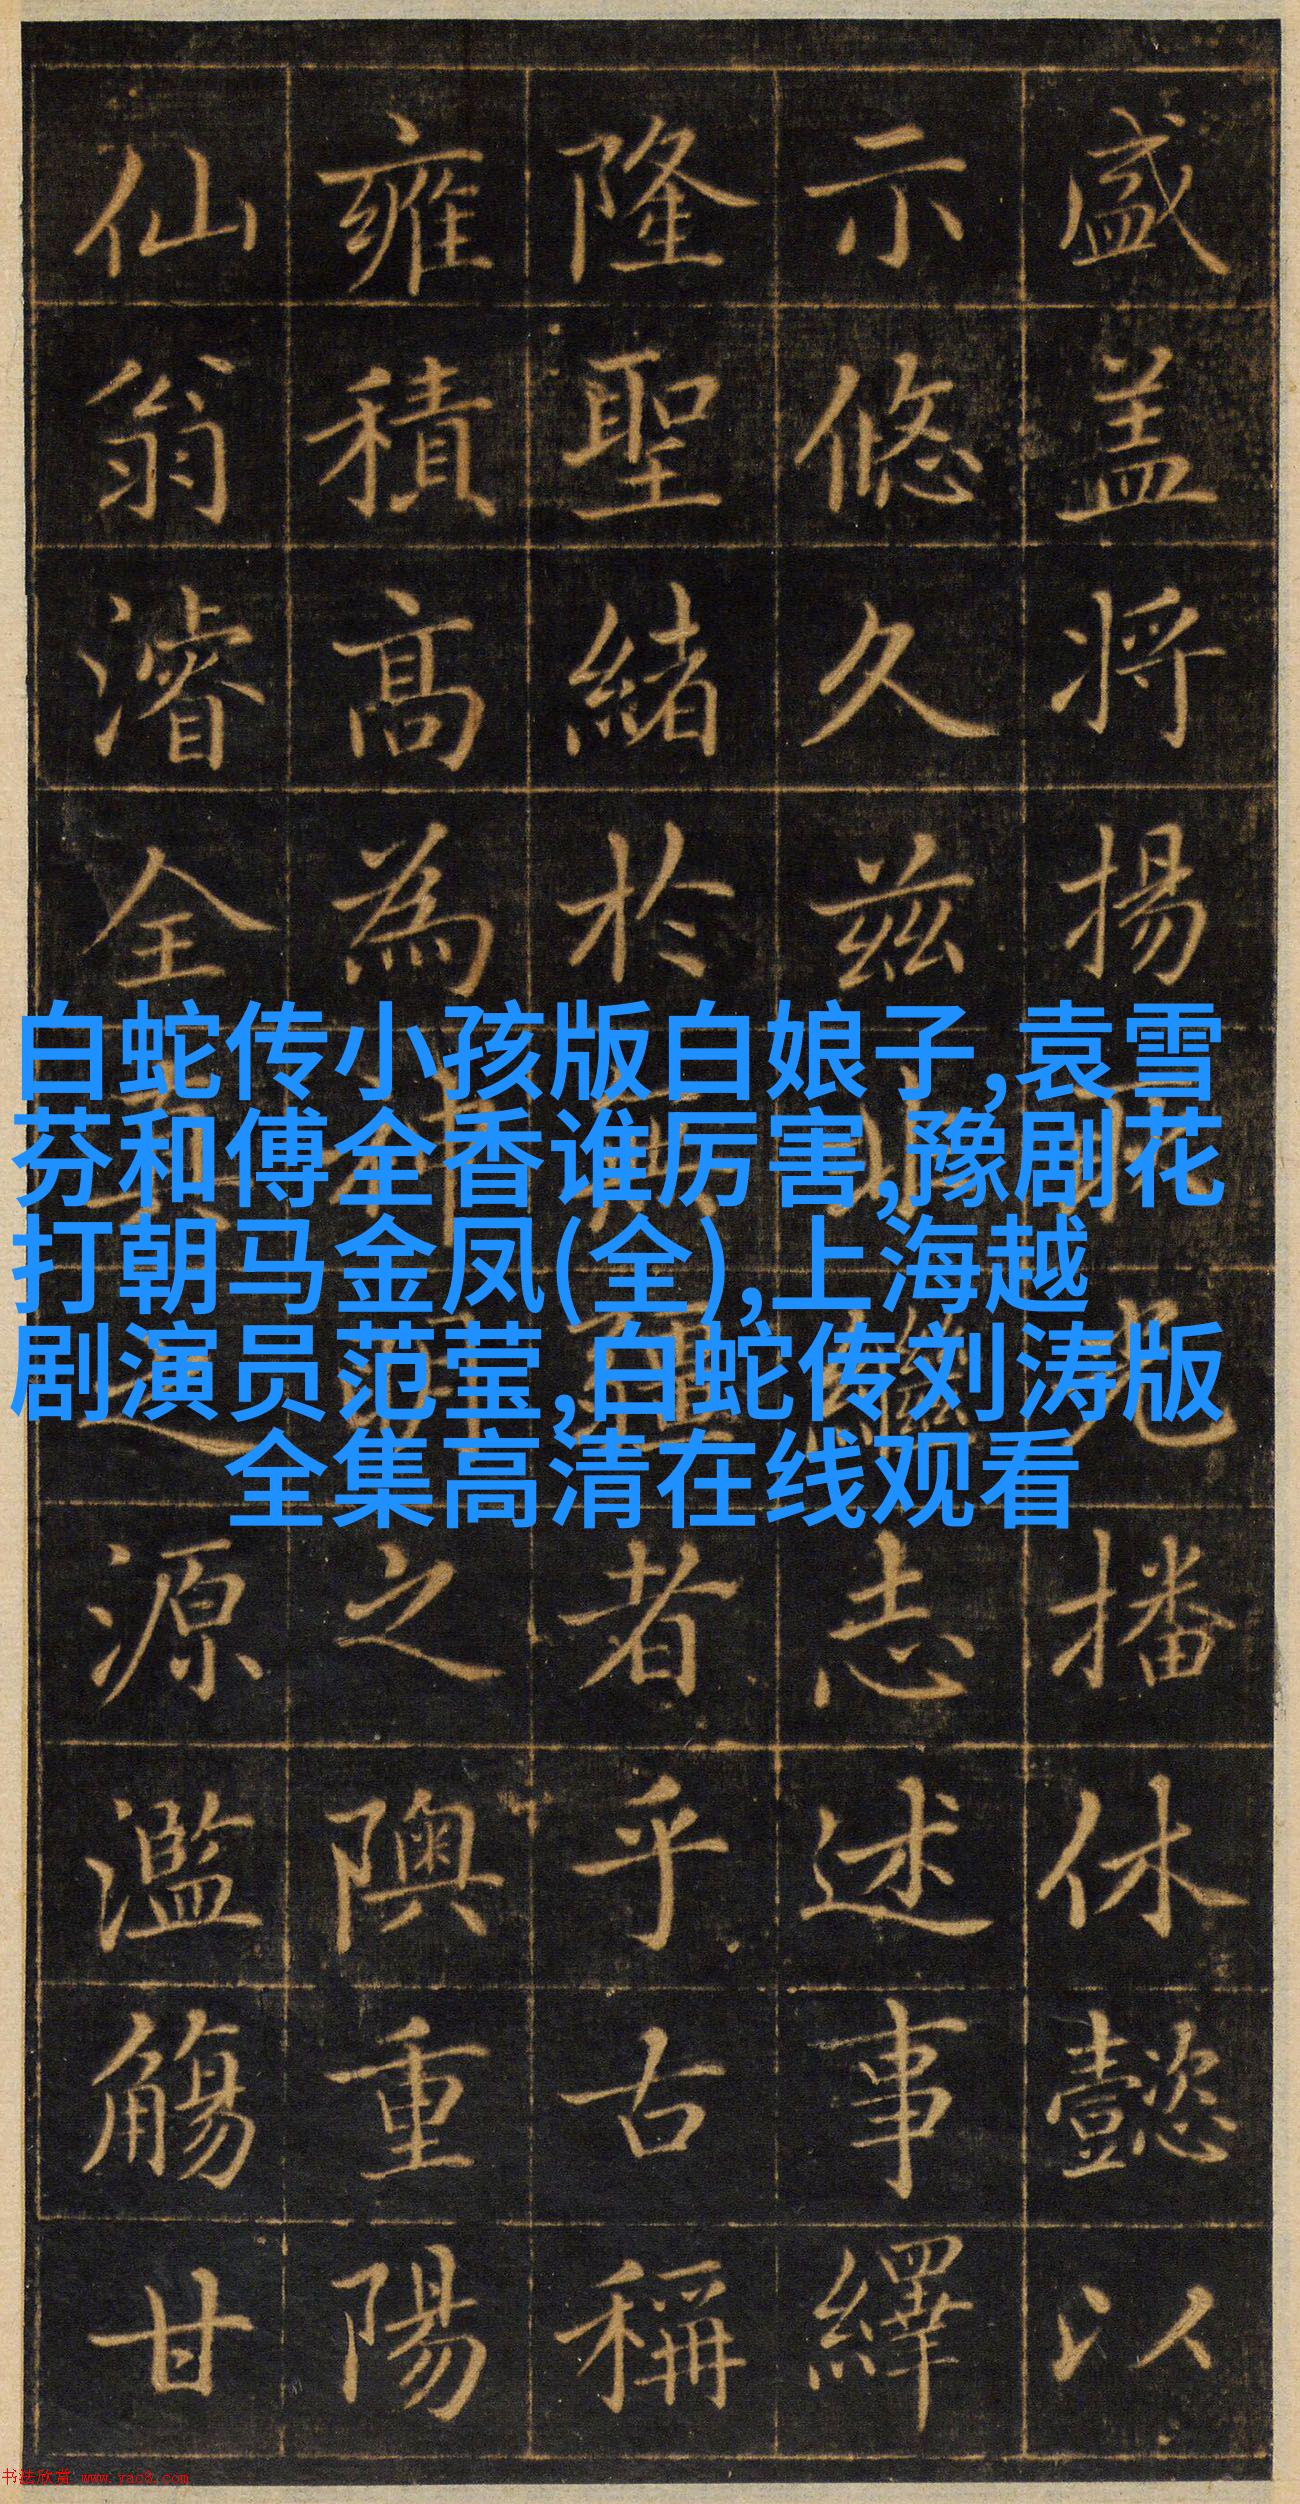 白蛇传小孩版白娘子,袁雪
芬和傅全香谁厉害,豫剧花
打朝马金凤(全),上海越
剧演员范莹,白蛇传刘涛版
全集高清在线观看
盛盖将揚光播休懿以
示悠久兹繼志述事繹
隆聖緒於者乎古稱
雍積高為之隩重陽
仙翁濬全源濫觴甘
书法欣赏 www.yac8.com